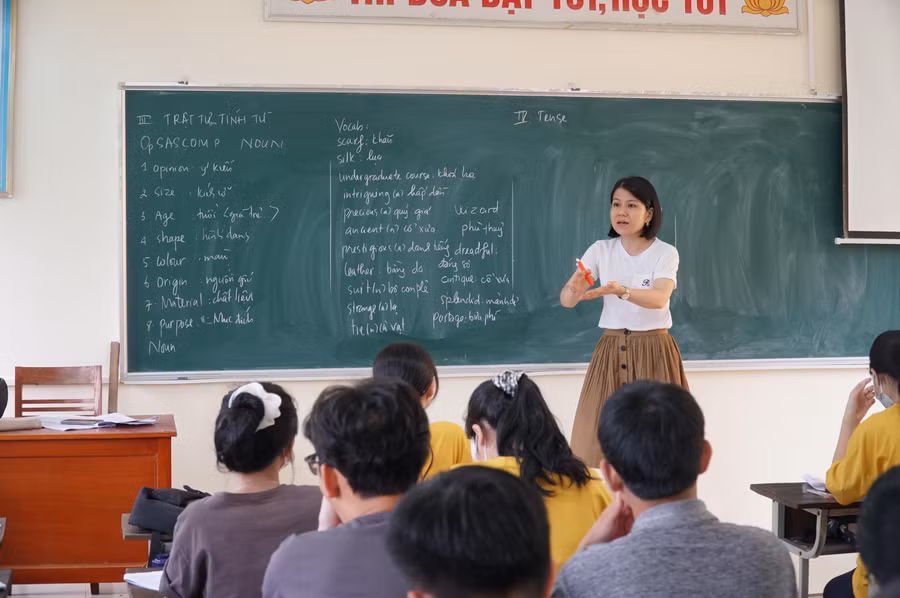 THI ĐUA DẠY TỐT, HỌC TỐT
III TRẬT TỰ TÍNH TỪ
OpSASCOMP NOUN
1 opinion: ý kiến
2 size: kích cỡ
3 Age: tuổi (già trẻ..)
4 shape: hình dạng
5 colour: màu
6 Origin: nguồn gốc
7 Material: chất liệu
8 purpose: Mục đích
Noun
Vocab:
scarf: khăn
silk: lụa
undergraduate course: khoá
intriguing (a) hấp dẫn
precious (a) quý giá
ancient (a) cổ xưa
prestigious (a) danh tiếng
leather: bằng da
suit (n) bộ comple
strange (a) lạ
tie (n) cà vạt
wizard
phù thuỷ
dreadful:
đáng sợ
antique: cổ xưa
splendid:
IV Tense